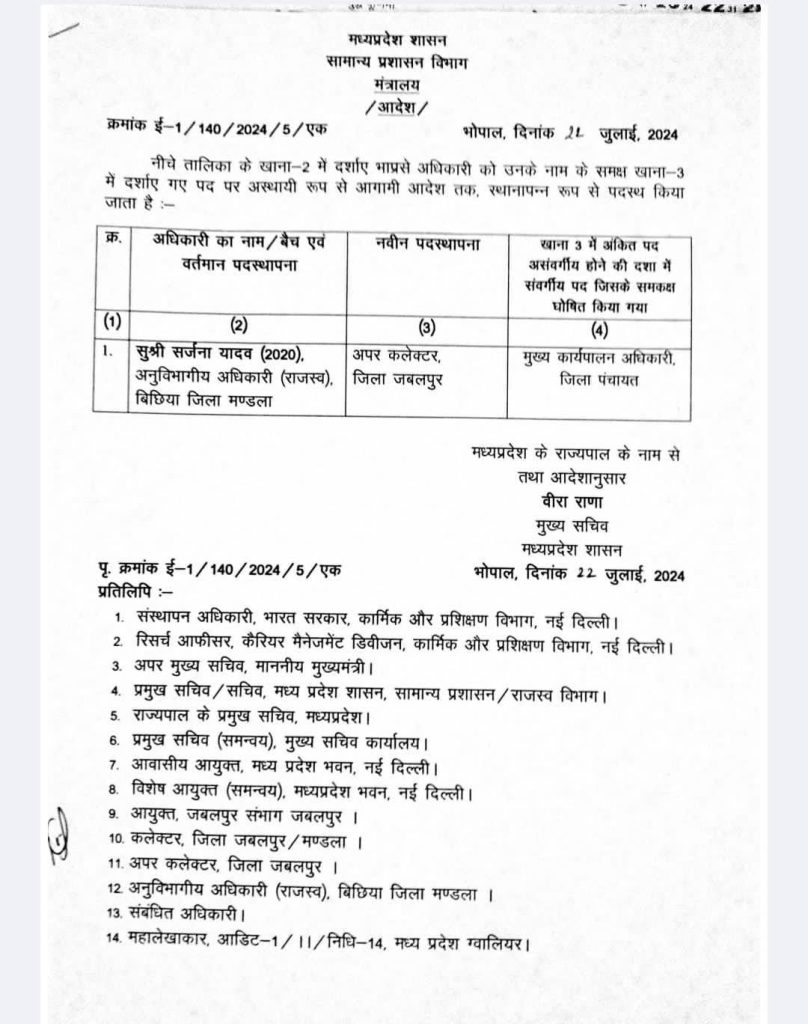 मध्यप्रदेश शासन
सामान्य प्रशासन विभाग
मंत्रालय
/आदेश/
क्रमांक ई–1/140/2024/5/एक
भोपाल, दिनांक 22 जुलाई, 2024
नीचे तालिका के खाना–2 में दर्शाए भाप्रसे अधिकारी को उनके नाम के समक्ष खाना–3
में दर्शाए गए पद पर अस्थायी रूप से आगामी आदेश तक, स्थानापन्न रूप से पदस्थ किया
जाता है :–
क्र.
अधिकारी का नाम/बैच एवं
वर्तमान पदस्थापना
नवीन पदस्थापना
खाना 3 में अंकित पद
असंवर्गीय होने की दशा में
संवर्गीय पद जिसके समकक्ष
घोषित किया गया
(1)
(2)
(3)
(4)
1.
सुश्री सर्जना यादव (2020),
अनुविभागीय अधिकारी (राजस्व),
बिछिया जिला मण्डला
अपर कलेक्टर,
जिला जबलपुर
मुख्य कार्यपालन अधिकारी,
जिला पंचायत
मध्यप्रदेश के राज्यपाल के नाम से
तथा आदेशानुसार
वीरा राणा
मुख्य सचिव
मध्यप्रदेश शासन
पृ. क्रमांक ई–1/140/2024/5/एक
भोपाल, दिनांक 22 जुलाई, 2024
प्रतिलिपि :–
1. संस्थापन अधिकारी, भारत सरकार, कार्मिक और प्रशिक्षण विभाग, नई दिल्ली।
2. रिसर्च आफीसर, कैरियर मैनेजमेंट डिवीजन, कार्मिक और प्रशिक्षण विभाग, नई दिल्ली।
3. अपर मुख्य सचिव, माननीय मुख्यमंत्री।
4. प्रमुख सचिव/सचिव, मध्य प्रदेश शासन, सामान्य प्रशासन/राजस्व विभाग।
5. राज्यपाल के प्रमुख सचिव, मध्यप्रदेश।
6. प्रमुख सचिव (समन्वय), मुख्य सचिव कार्यालय।
7. आवासीय आयुक्त, मध्य प्रदेश भवन, नई दिल्ली।
8. विशेष आयुक्त (समन्वय), मध्यप्रदेश भवन, नई दिल्ली।
9. आयुक्त, जबलपुर संभाग जबलपुर ।
10. कलेक्टर, जिला जबलपुर/मण्डला ।
11. अपर कलेक्टर, जिला जबलपुर ।
12. अनुविभागीय अधिकारी (राजस्व), बिछिया जिला मण्डला ।
13. संबंधित अधिकारी।
14. महालेखाकार, आडिट–1/II/निधि–14, मध्य प्रदेश ग्वालियर।